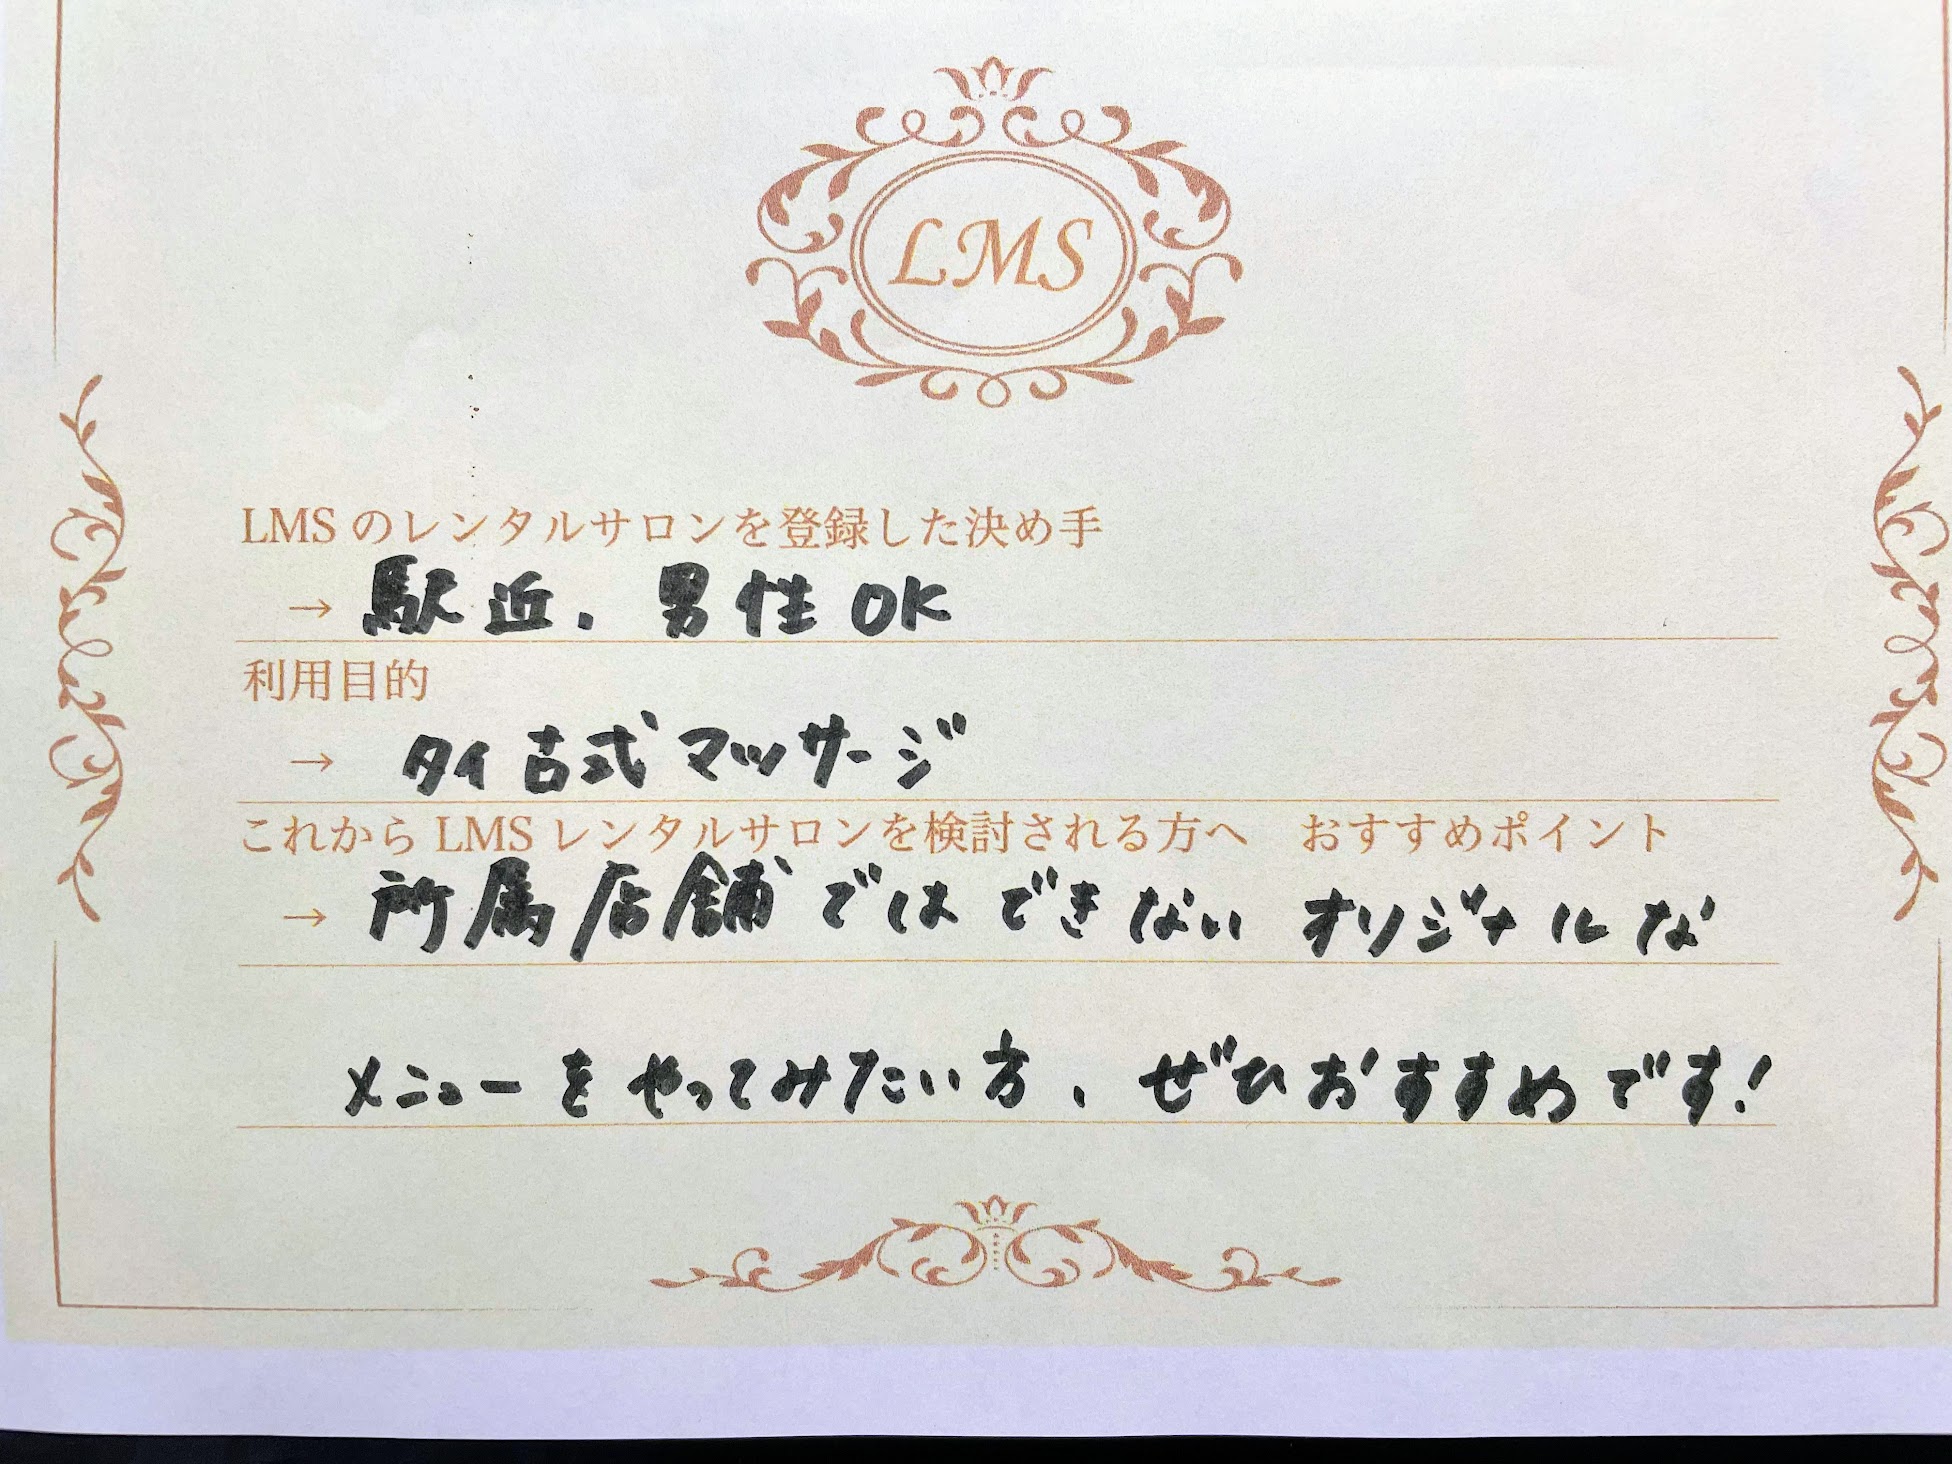 LMS
LMSのレンタルサロンを登録した決め手
→ 駅近、男性OK
利用目的
→ タイ古式マッサージ
これからLMSレンタルサロンを検討される方へ　おすすめポイント
→ 所属店舗ではできないオリジナルな
メニューをやってみたい方、ぜひおすすめです!